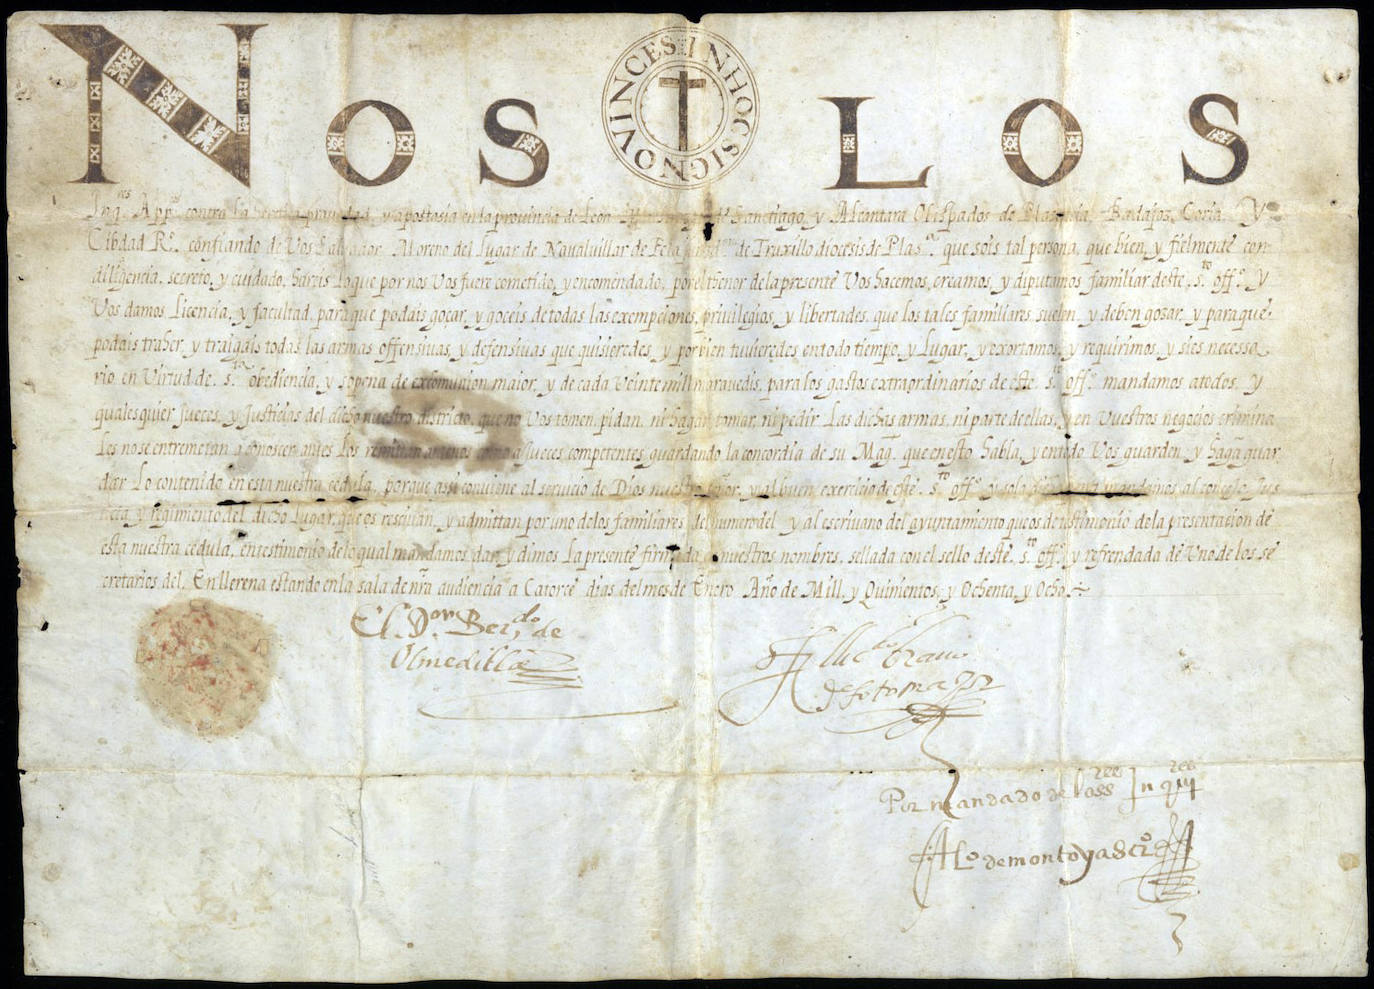 NOS LOS
IN HOC SIGNO VINCES
Inq.res App.os contra la heretica pravedad, y apostasia en la provincia de Leon Sanctiago, y Alcantara Obispados de Plasencia, Badajoz, Coria, Y
Cibdad R.l confiando de Vos Salvador Moreno del lugar de Navalvillar de Pela de Truxillo diocesis de Plas.a que sois tal persona, que bien, y fielmente con
diligencia, secreto, y cuidado, hareis lo que por nos Vos fuere cometido, y encomendado, por el thenor de la presente Vos hacemos, creamos, y diputamos familiar deste s.to off.o Y
Vos damos Licencia, y facultad, para que podais goçar, y goceis de todas las exempciones, privilegios, y libertades, que los tales familiares suelen, y deben gozar, y para que
podais traher, y traigais todas las armas offensivas, y defensivas que quisieredes, y por bien tuvieredes en todo tiempo, y Lugar, y exortamos, y requirimos, y si es necessa
rio en Virtud de s.ta obediencia, y so pena de excomunion maior, y de cada Veinte mill maravedis, para los gastos extraordinarios de este s.to off.o mandamos a todos, y
quales quier Jueces, y Justicias del dicho nuestro districto, que no Vos tomen, pidan, ni hagan tomar, ni pedir Las dichas armas, ni parte de ellas, y en Vuestros negocios crimina
les no se entremetan a conoscer, antes los remittan a nos como a jueces competentes, guardando la concordia de su Mag. que en esto habla, y en todo Vos guarden, y hagã guar
dar Lo contenido en esta nuestra cedula, porque assi conviene al servicio de Dios nuestro señor, y al buen exercicio de este s.to off.o mandamos, al concejo, Jus
ticia, y regimiento del dicho Lugar, que os resciban, y admittan por uno de los familiares del numero del y al escrivano del ayuntamiento que os de testimonio de la presentacion de
esta nuestra cedula, en testimonio de lo qual mandamos dar, y dimos La presente firmada de nuestros nombres, sellada con el sello deste s.to off.o y refrendada de Uno de los se
cretarios del. En llerena estando en la sala de nrã audiencia a Catorce dias del mes de Enero Año de Mill, y Quinientos, y Ochenta, y Ocho
El D.or Ber.do de
Olmedilla
de sotomayor
Por mandado de los ss.res Inqui.res
Al.o de montoya secr.o